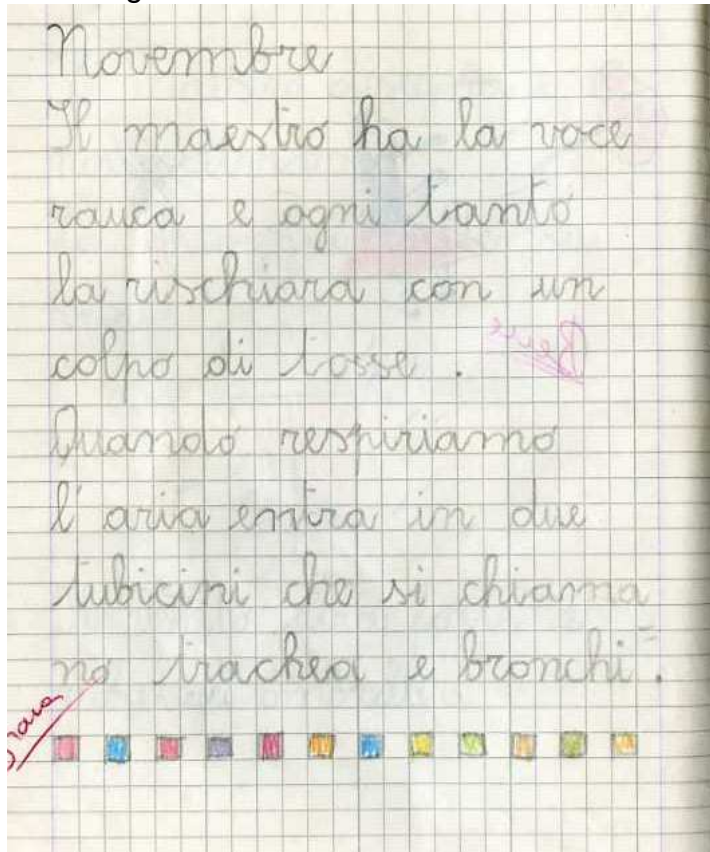 Novembre
Il maestro ha la voce
rauca e ogni tanto
la rischiara con un
colpo di tosse.
Quando respiriamo
l'aria entra in due
tubicini che si chiama
no trachea e bronchi.